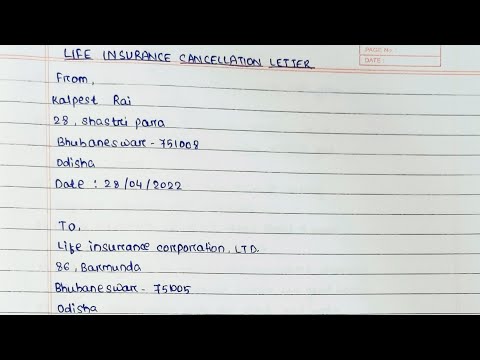 PAGE No.
DATE:
LIFE INSURANCE CANCELLATION LETTER
From,
Kalpest Rai
28, Shastri para
Bhubaneswar - 751008
Odisha
Date : 28/04/2022
To,
Life insurance corporation, LTD.
86, Barmunda
Bhubaneswar - 751005
Odisha